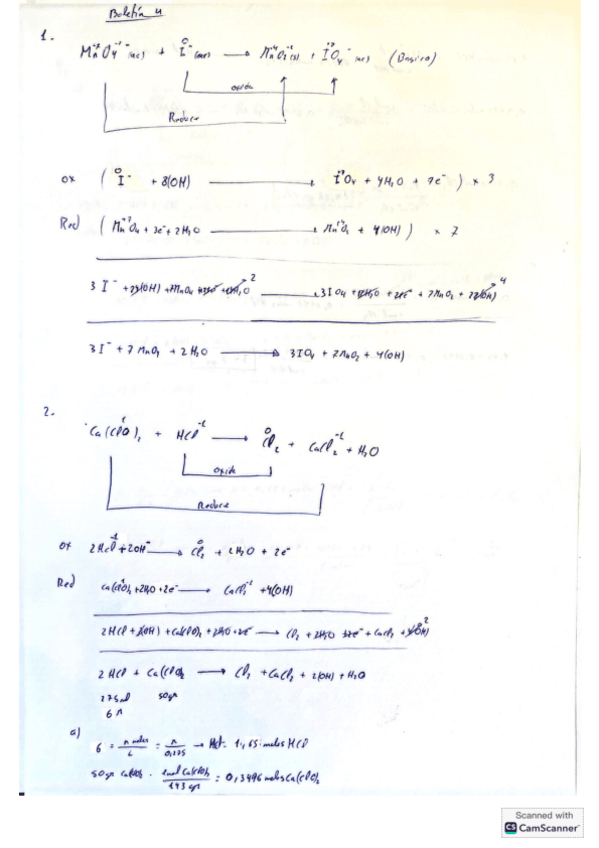 Boletín 4
1.
Mn⁺⁷O₄⁻²⁻(ac) + I⁻(ac) → Mn⁺⁴O₂⁻²(s) + I⁺⁷O₄⁻(ac) (Basico)
oxida
Reduce
ox ( I⁻ + 8(OH) → I⁺⁷O₄ + 4H₂O + 7e⁻ ) x 3
Red ( Mn⁺⁷O₄ + 3e⁻ + 2H₂O → Mn⁺⁴O₂ + 4(OH) ) x 7
3 I⁻ + 7MnO₄ 2 → 3IO₄ + 7MnO₂ 4
3 I⁻ + 7 MnO₄ + 2 H₂O → 3IO₄ + 7MnO₂ + 4(OH)
2.
Ca(ClO)₂ + HCl⁻¹ → Cl₂ + CaCl₂⁻¹ + H₂O
Oxida
Reduce
ox 2HCl⁻¹ + 2OH⁻ → Cl₂ + 2H₂O + 2e⁻
Red Ca(ClO)₂ + 2H₂O + 2e⁻ → CaCl₂⁻¹ + 4(OH)
2HCl + 2(OH) + Ca(ClO)₂ + 2H₂O + 2e⁻ → Cl₂ + 2H₂O + 2e⁻ + CaCl₂ + 4(OH) 2
2 HCl + Ca(ClO)₂ → Cl₂ + CaCl₂ + 2(OH) + H₂O
275ml 50gr
6 M
a) 6 = n moles/L = n/0,275 → HCl = 1,65 moles HCl
50gr Ca(ClO)₂ · 1mol Ca(ClO)₂/143 gr = 0,3496 moles Ca(ClO)₂
Scanned with
CS CamScanner